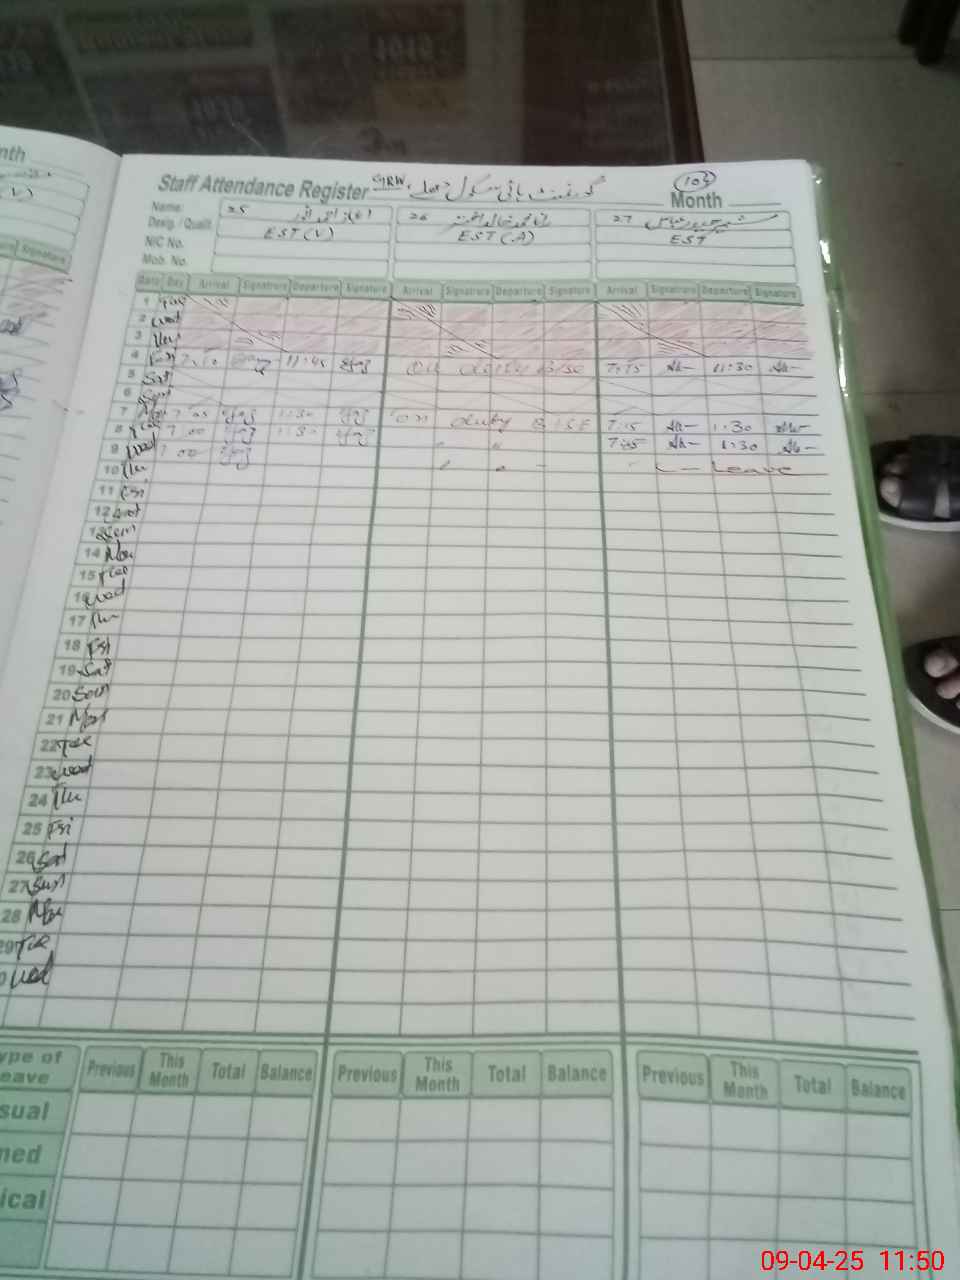 nth
(V)
Signature
Staff Attendance Register GRW.
103
Month
Name: 25 26 27
Desig. / Qualif. EST (V) EST (A) EST
NIC No.
Mob. No.
Date Day Arrival Signature Departure Signature Arrival Signature Departure Signature Arrival Signature Departure Signature
1 Tue
2 Wed
3 Thu
4 Fri 11:45 7:15 11:30
5 Sat
6 Sun
7 Mon 7 05 1:30 on duty BISE 7:15 1:30
8 Tue 7 00 1:30 " 7:15 1:30
9 Wed 7 00 Leave
10 Thu
11 Fri
12 Sat
13 Sun
14 Mon
15 Tue
16 Wed
17 Thu
18 Fri
19 Sat
20 Sun
21 Mon
22 Tue
23 Wed
24 Thu
25 Fri
26 Sat
27 Sun
28 Mon
29 Tue
0 Wed
ype of eave Previous This Month Total Balance Previous This Month Total Balance Previous This Month Total Balance
sual
ned
ical
09-04-25 11:50